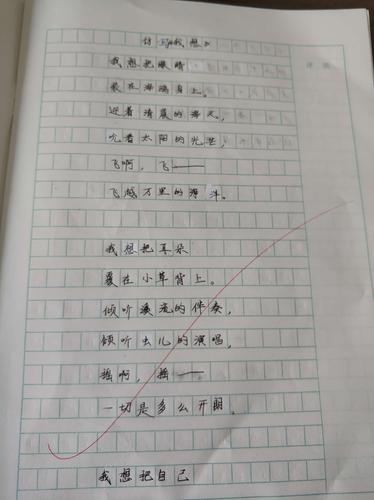 仿写《我想》
我想把眼睛
装在海鸥身上。
迎着清晨的海风,
吮着太阳的光芒,
飞啊,飞——
飞越万里的海洋。
我想把耳朵
装在小草背上。
倾听溪流的伴奏,
倾听虫儿的演唱,
摇啊,摇——
一切是多么开朗。
我想把自己